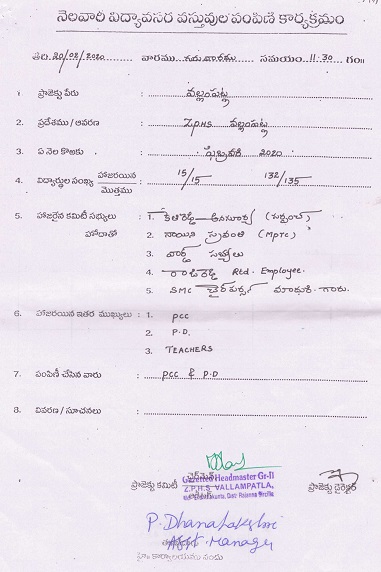 నెలవారీ విద్యావసర వస్తువుల పంపిణి కార్యక్రమం
తేది. 20/02/2020 వారము గురువారము సమయం. 11:30 గం॥
1. ప్రాజెక్టు పేరు : వల్లంపట్ల
2. ప్రదేశము / ఆవరణ : Z.P.H.S వల్లంపట్ల
3. ఏ నెల కొఱకు : ఫిబ్రవరి 2020
4. విద్యార్థుల సంఖ్య హాజరయిన / మొత్తము : 15/15 132/135
5. హాజరైన కమిటీ సభ్యులు : 1. అనసూర్య (సర్పంచ్)
హోదాతో 2. స్రవంతి (MPTC)
3. వార్డ్ సభ్యులు
4. Rtd. Employee.
5. SMC చైర్ పర్సన్ మాధురి గారు.
6. హాజరయిన ఇతర ముఖ్యులు : 1. PCC
2. P.D.
3. TEACHERS
7. పంపిణీ చేసిన వారు : PCC & P.D
8. వివరణ / సూచనలు :
చైర్మెన్
ప్రాజెక్టు కమిటీ Gazetted Headmaster Gr-II ప్రాజెక్టు డైరెక్టర్
Z.P.H.S. VALLAMPATLA,
Dist: Rajanna Sircilla
P. Dhanalakshmi
Asst. Manager
హోం కార్యాలయము నందు